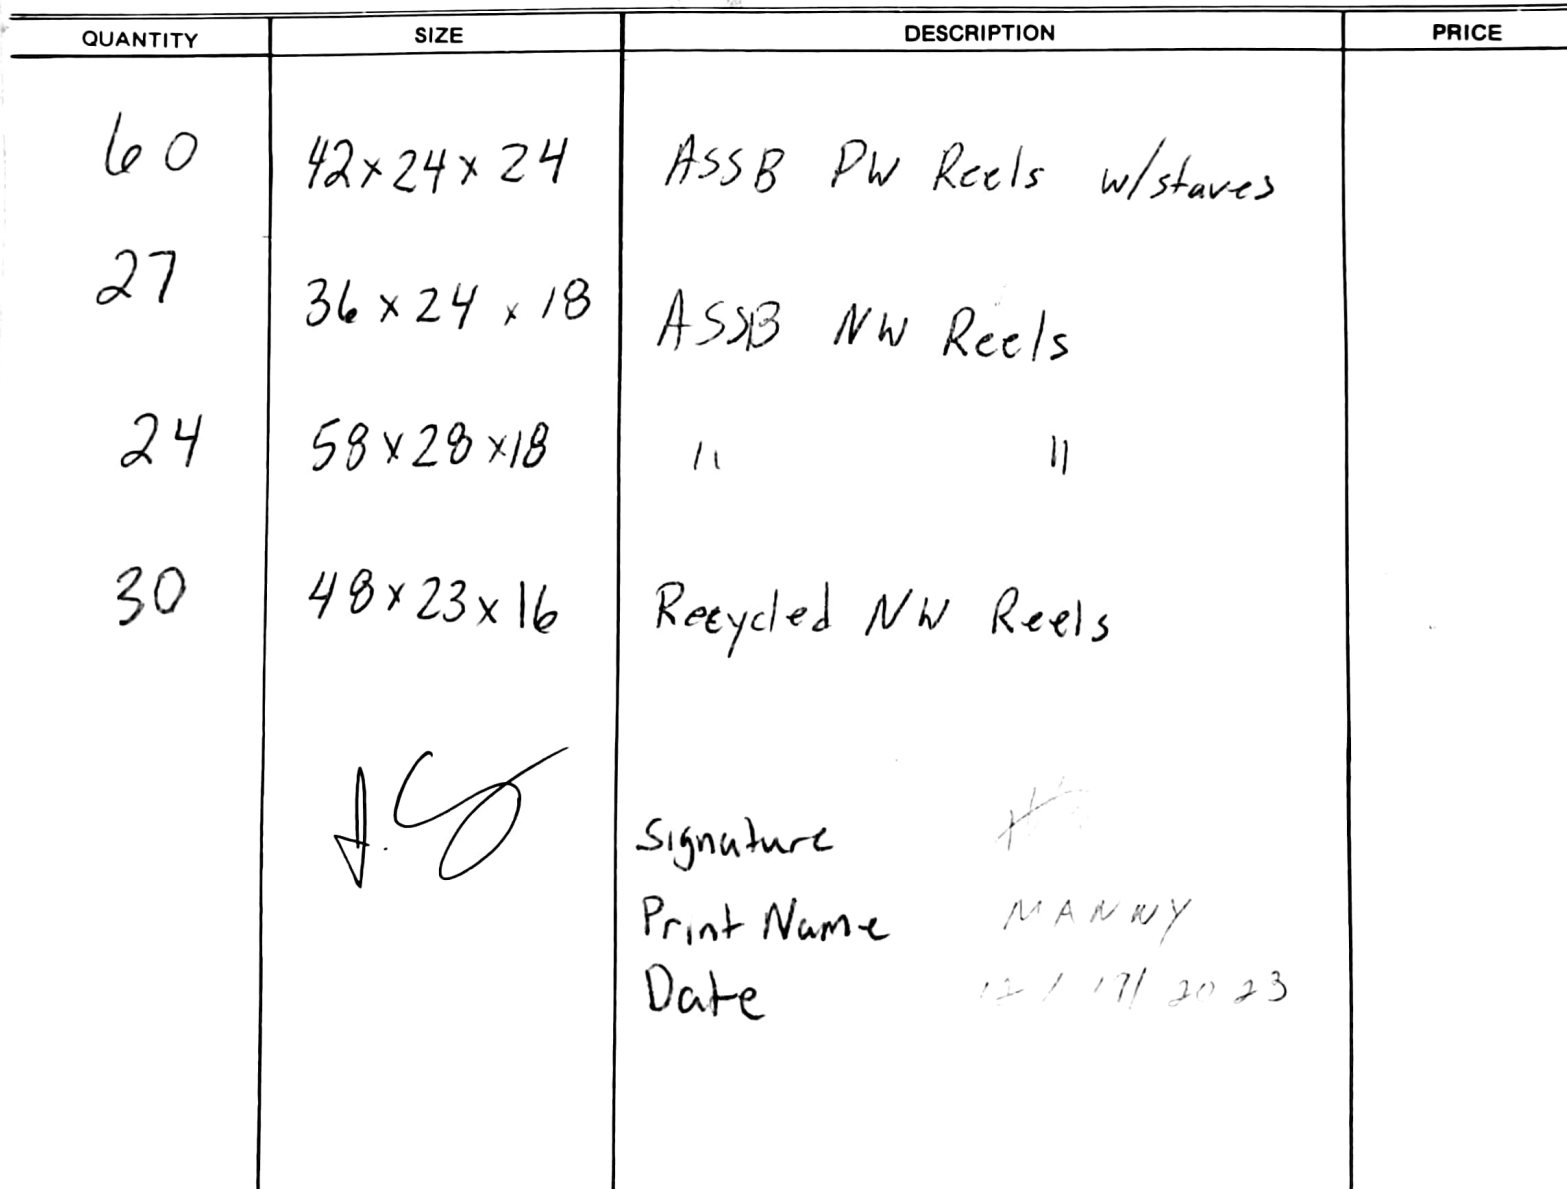 QUANTITY SIZE DESCRIPTION PRICE
60 42x24x24 ASSB PW Reels w/staves
27 36x24x18 ASSB NW Reels
24 58x28x18 " "
30 48x23x16 Recycled NW Reels
Signature
Print Name MANNY
Date 12/19/2023